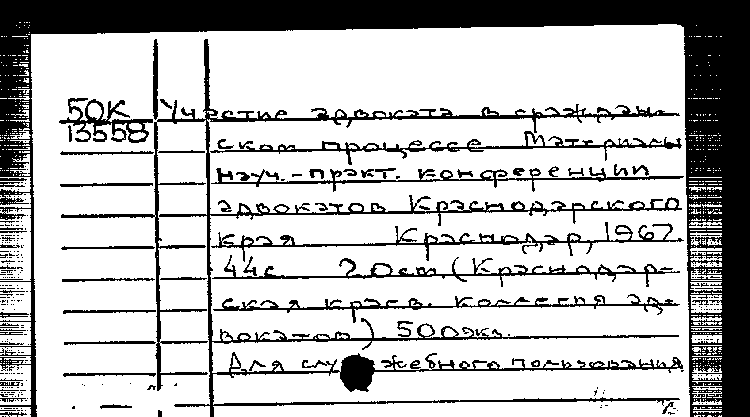 50К Участие адвоката в граждан-
13558
ском процессе Материалы
науч.-практ. конференции
адвокатов Краснодарского
края Краснодар, 1967
44с 20см. (Краснодар-
ская краев. коллегия ад-
вокатов) 500экз.
Для служебного пользования